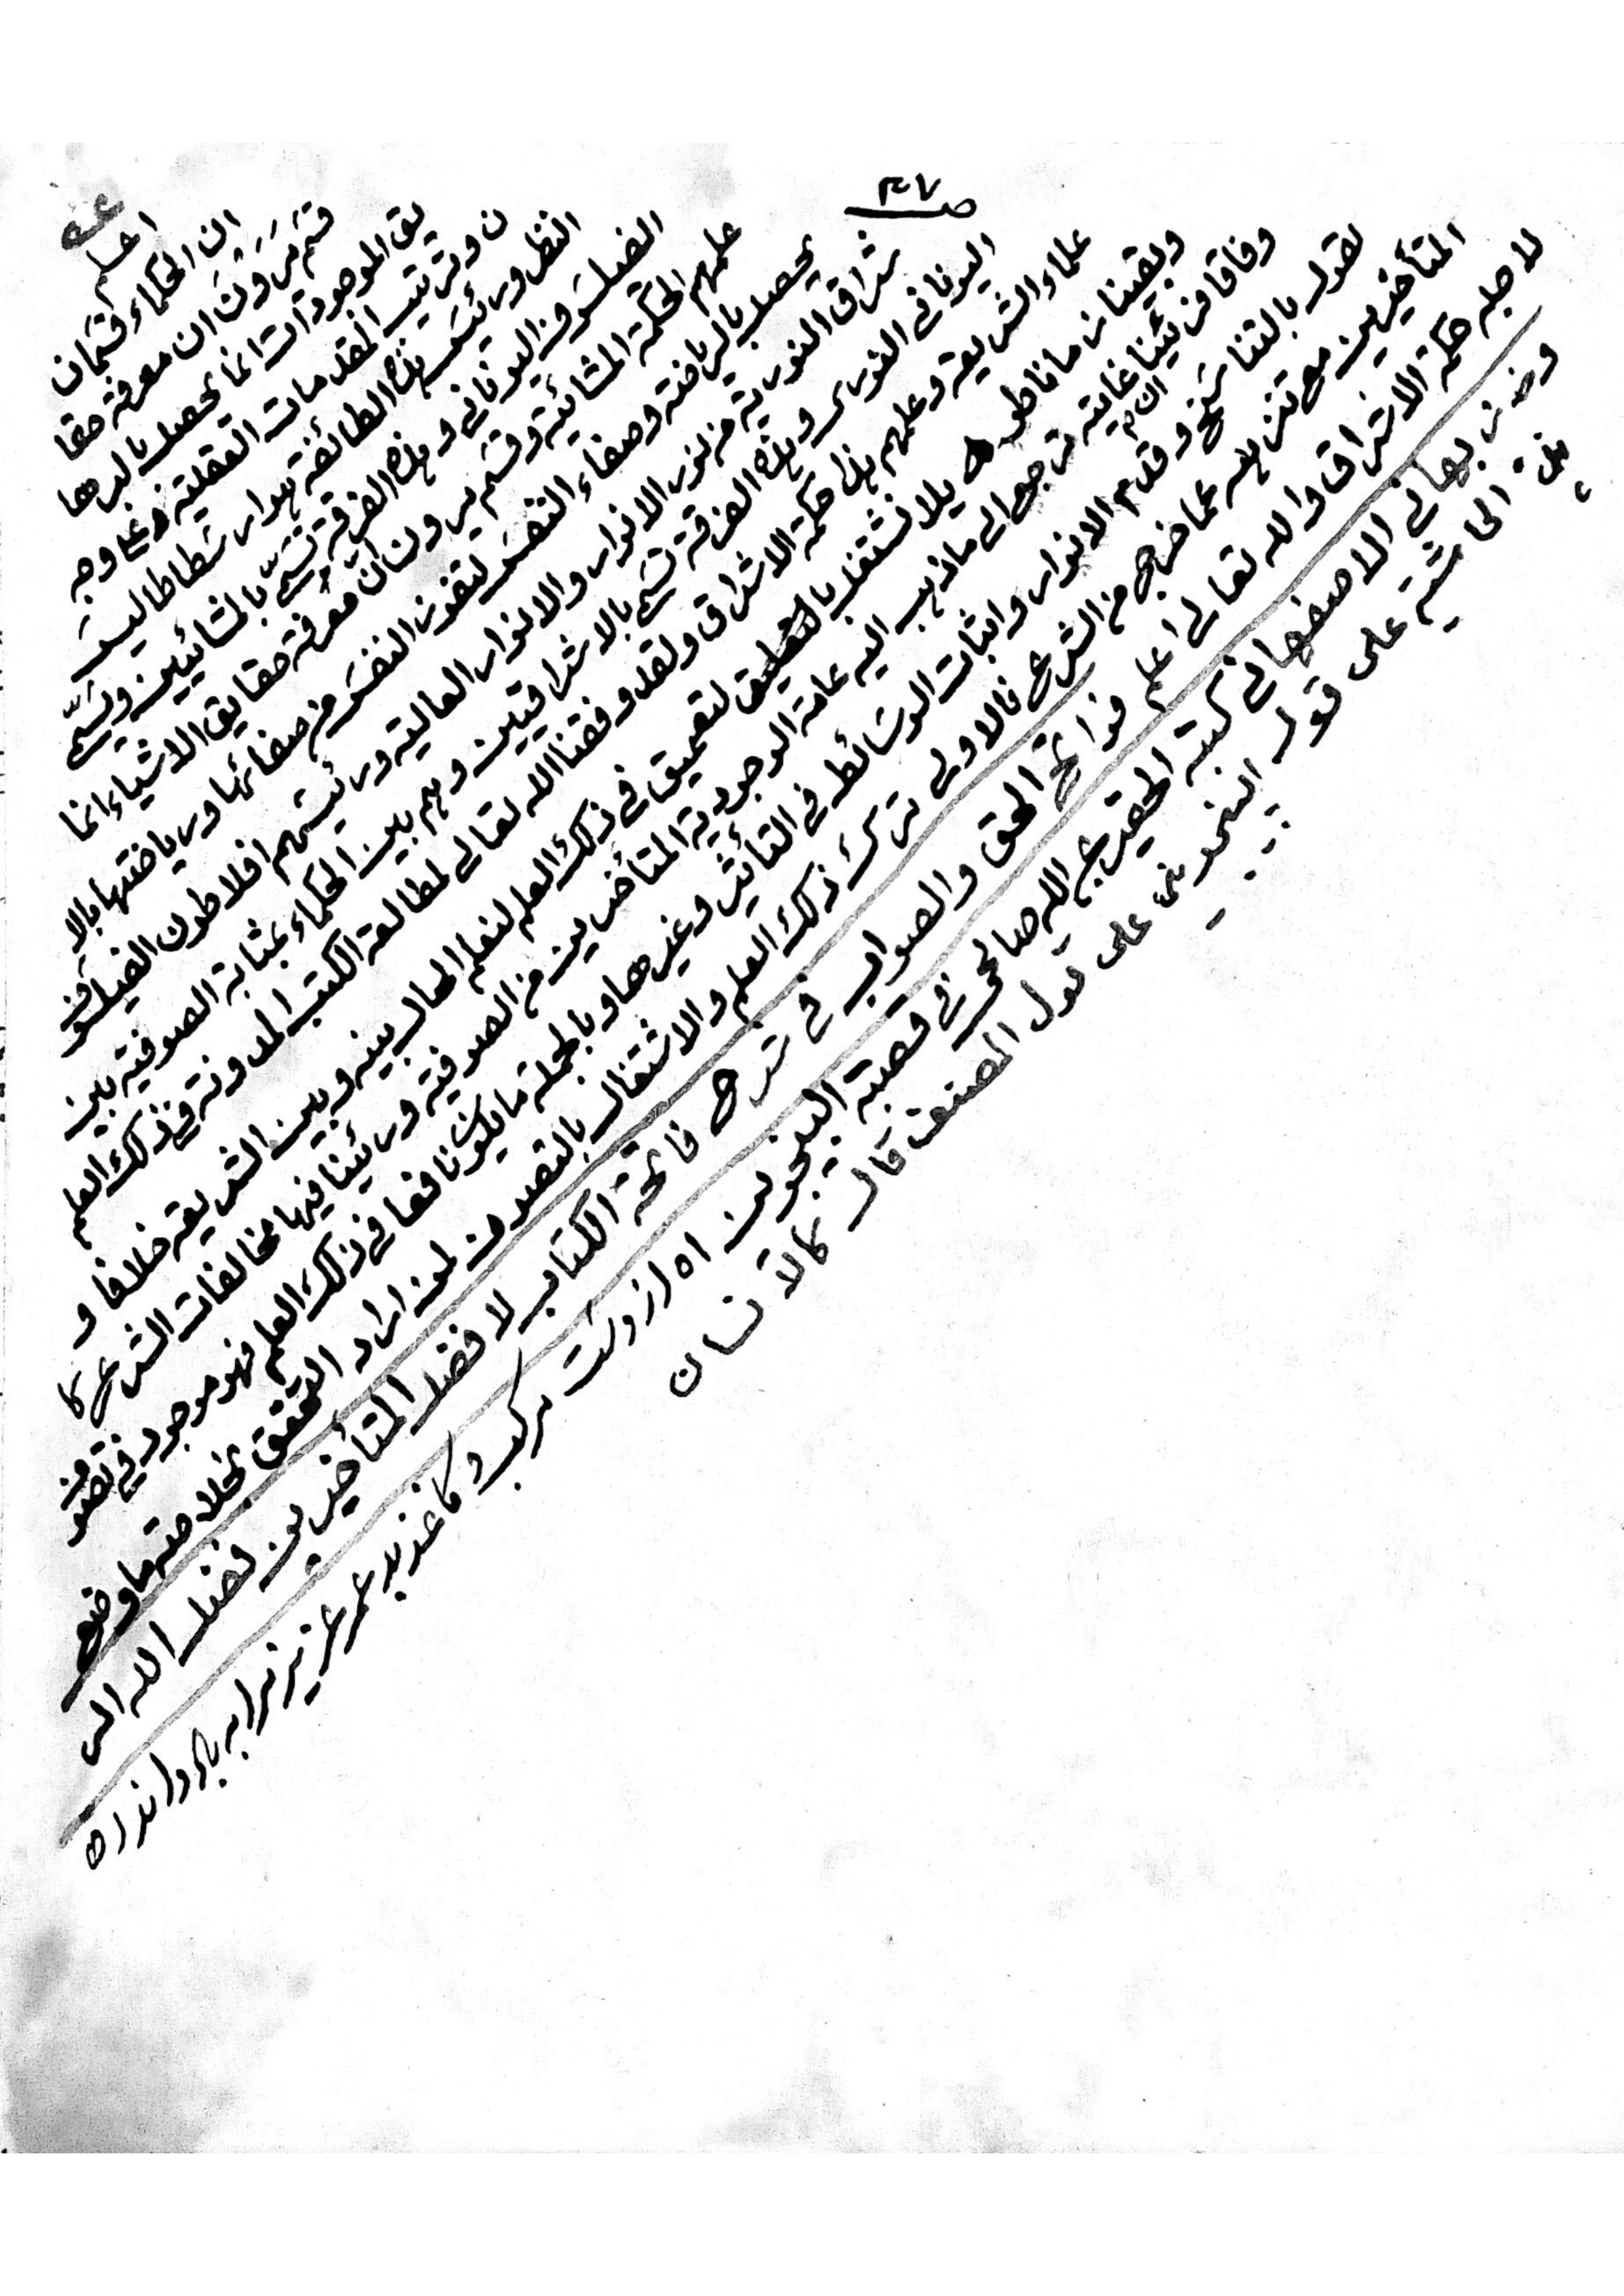 ص٣٧
اعلم
ان الحكماء قسمان
قسم يرون ان معرفة حقا
يق الموجودات انما يحصل بالبرها
ن وترتيب المقدمات العقلية وعلى وجه
النظر ورئيس هذه الطائفة هو ارسطاطاليس
الفيلسوف اليوناني وهذه الفرقة تسمى بالمشائيين ويسمى
علمهم الحكمة المشائية وقسم يرون ان معرفة حقايق الاشياء انما
يحصل بالرياضة وصفاء النفس لتفوز النفس من صفائها ورياضتها بالا
شراق النورية من نور الانوار والانوار العالية ورئيسهم افلاطون الفيلسوف
اليوناني النوري وهذه الفرقة تسمى بالاشراقيين وهم بين الحكماء بمثابة الصوفية بين
علماء الشريعة وعلمهم هذا حكمة الاشراق ولقد وفقنا الله تعالى لمطالعة الكتب المدونة في ذلك العلم
وبقينا زمانا طويلا نشتغل بالتحقيق لتعميق في ذلك العلم لنعلم الحال بينه وبين الشريعة خلافا و
وفاقا فرئينا غايته ان ترجع الى ما ذهب اليه عامة الوجودية المتأخرين من الصوفية ورئينا فيها مخالفات الشرع كا
لقول بالتناسخ وقدم الانوار واثبات الوسائط في التأثير وغيرها وبالجملة ما يكون نافعا في ذلك العلم فهو موجود في تصوف
المتأخرين مع تنزهه عما خرج من الشرع فالاولى ترك ذلك العلم والاشتغال بالتصوف لمن اراد التحقق بخلاصتها وضع
لاجله حكمة الاشراق والله تعالى اعلم فواتح الحق والصواب في شرح فاتحة الكتاب لافضل المتأخرين فضل الله الر
وز بهاني الاصفهاني كتبه الحقير صالح في قصبة البنجوين اه از دست مركب و كاغذ بد عمر عزيز را به باد اند اه
الحاشية على قول البنجوني على قول المصنف قال كالانسان